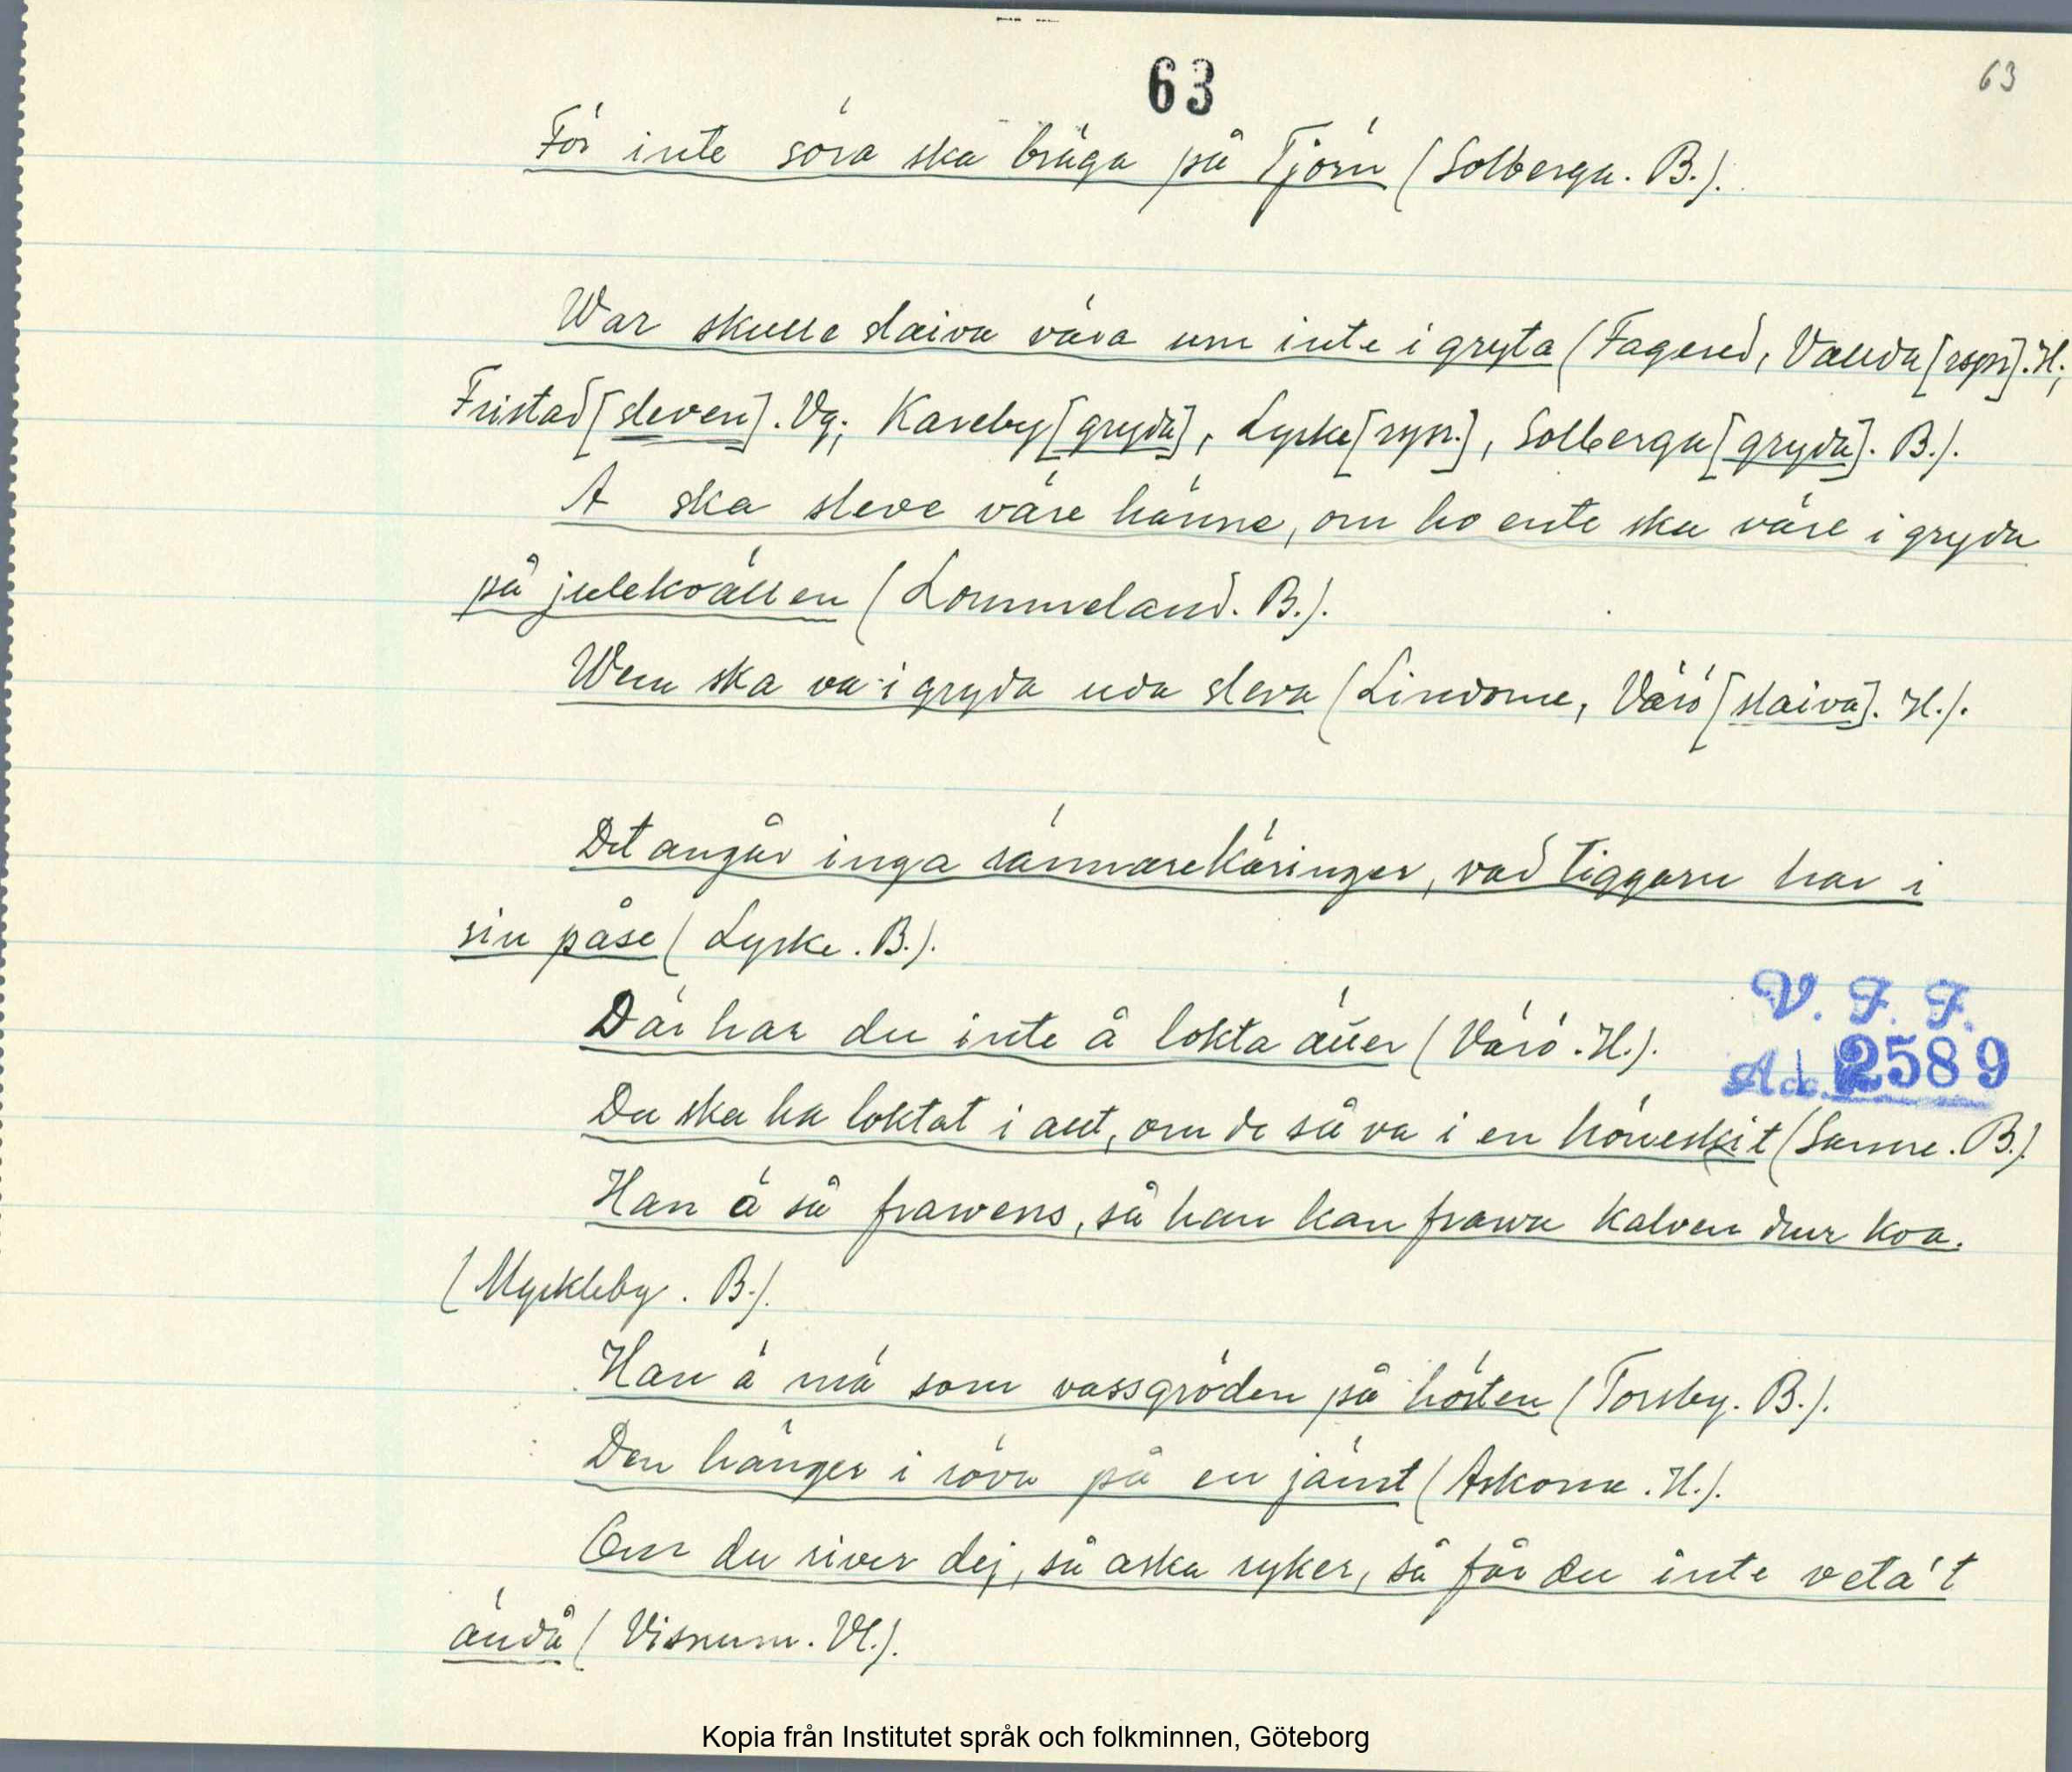 63
63
För inte söra ska bräga på Tjörn (Solberga. B.).
War skulle slaiva vára um inte i gryta (Fagered, Vallda [rspr]. H.;
Fristad [sleven]. Vg; Kareby [gryda], Lyske [rspr.], Solberga [gryda]. B.).
A ska sleve väre hänne, om ho ente ska väre i gryda
på julekvällen (Lommeland. B.).
Wem ska va i gryda uda sleva (Lindome, Värö [slaiva]. H.).
Det angår inga rännarekäringer, vad tiggarn har i
sin påse (Lyske. B.).
Där har du inte å lokta äuer (Värö. H.).
Du ska ha loktat i aut, om de så va i en höneskit (Sanne. B.).
Han ä så frawens, så han kan frawa kalven dur koa.
(Myckleby. B.).
Han ä mä som vassgröden på hösten (Torsby. B.).
Den hänger i röva på en jämt (Askome. H.).
Om du river dej, så aska ryker, så får du inte veta't
ändå (Visnum. Vl.).
V. F. F.
Acc. 2589
Kopia från Institutet språk och folkminnen, Göteborg